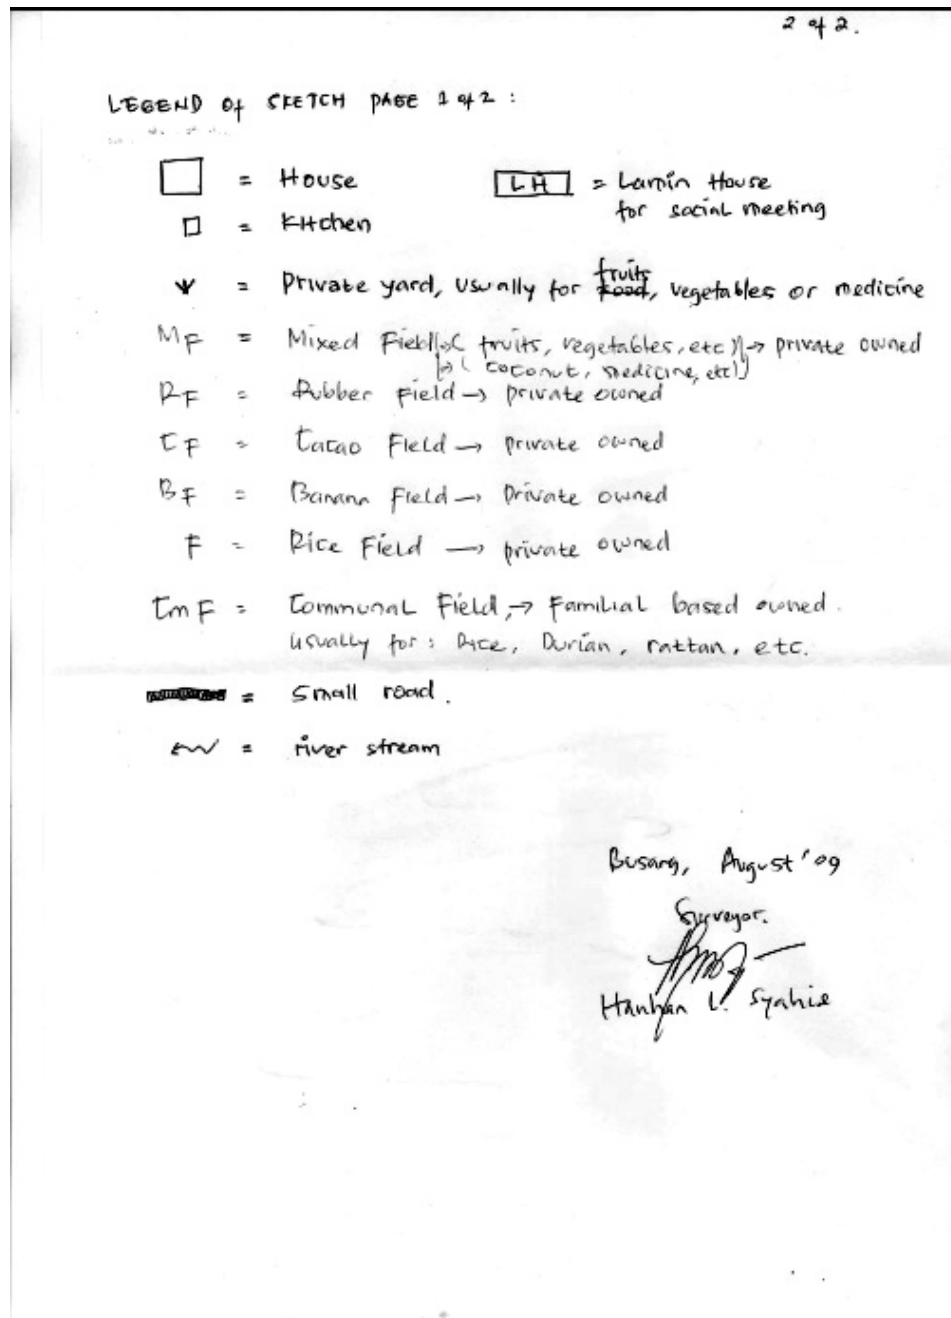 2 of 2.
LEGEND Of SKETCH PAGE 1 of 2 :
= House
LH = Lamin House
for social meeting
= Kitchen
fruits
= Private yard, usually for food, vegetables or medicine
MF = Mixed Field (fruits, vegetables, etc) → private owned
→ ( coconut, medicine, etc)
RF = Rubber Field → private owned
CF = Cacao Field → private owned
BF = Banana Field → Private owned
F = Rice Field → private owned
CmF = Communal Field, → Familial based owned.
usually for : Rice, Durian, rattan, etc.
= Small road.
= river stream
Busang, August '09
Surveyor.
Hanhan L. Syahie